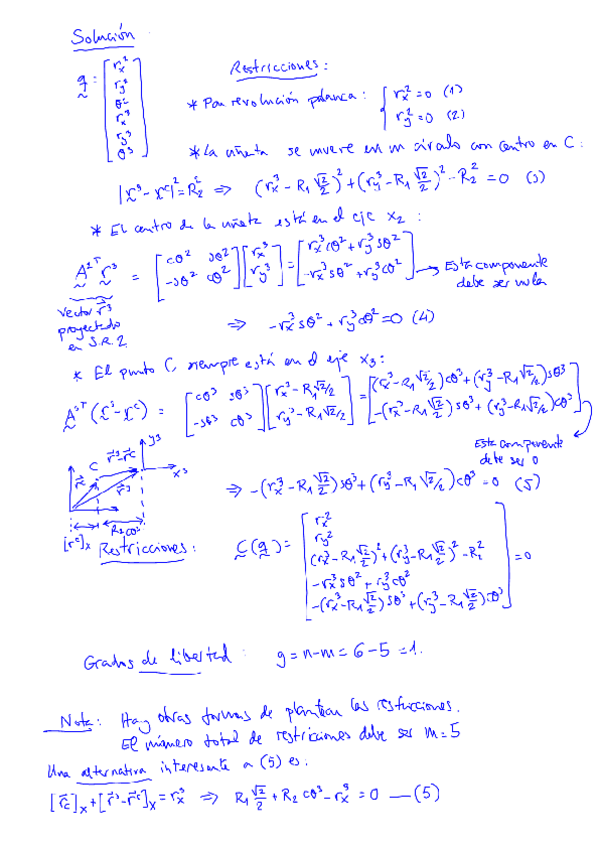 Solución
q : [ r_x^2 r_y^2 θ^2 r_x^3 r_y^3 θ^3 ]
Restricciones :
* Par revolución palanca : { r_x^2 = 0 (1)
r_y^2 = 0 (2)
* La uñeta se mueve en un círculo con centro en C :
|r^3 - r^c|^2 = R_2^2 ⇒ (r_x^3 - R_1 √2/2)^2 + (r_y^3 - R_1 √2/2)^2 - R_2^2 = 0 (3)
* El centro de la uñeta está en el eje x_2 :
A^{2T} r^3 = [ cθ^2 sθ^2 ; -sθ^2 cθ^2 ] [ r_x^3 ; r_y^3 ] = [ r_x^3 cθ^2 + r_y^3 sθ^2 ; -r_x^3 sθ^2 + r_y^3 cθ^2 ] → Esta componente
debe ser nula
Vector r^3
proyectado
en S.R.2
⇒ -r_x^3 sθ^2 + r_y^3 cθ^2 = 0 (4)
* El punto C, siempre está en el eje x_3 :
A^{3T} (r^3 - r^c) = [ cθ^3 sθ^3 ; -sθ^3 cθ^3 ] [ r_x^3 - R_1 √2/2 ; r_y^3 - R_1 √2/2 ] = [ (r_x^3 - R_1 √2/2) cθ^3 + (r_y^3 - R_1 √2/2) sθ^3 ; -(r_x^3 - R_1 √2/2) sθ^3 + (r_y^3 - R_1 √2/2) cθ^3 ]
Esta componente
debe ser 0
y^3
r^3 - r^c
C
r^c
r^3
x^3
[r^c]_x
R_2 cθ^3
⇒ -(r_x^3 - R_1 √2/2) sθ^3 + (r_y^3 - R_1 √2/2) cθ^3 = 0 (5)
Restricciones : C(q) = [ r_x^2 ; r_y^2 ; (r_x^3 - R_1 √2/2)^2 + (r_y^3 - R_1 √2/2)^2 - R_2^2 ; -r_x^3 sθ^2 + r_y^3 cθ^2 ; -(r_x^3 - R_1 √2/2) sθ^3 + (r_y^3 - R_1 √2/2) cθ^3 ] = 0
Grados de libertad : g = n - m = 6 - 5 = 1.
Nota : Hay otras formas de plantear las restricciones.
El número total de restricciones debe ser m = 5
Una alternativa interesante a (5) es :
[r_c]_x + [r^3 - r^c]_x = r_x^3 ⇒ R_1 √2/2 + R_2 cθ^3 - r_x^3 = 0 — (5)